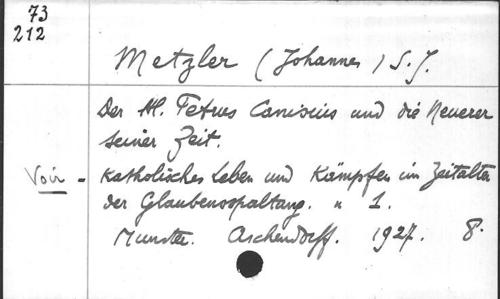 73
212
Metzler (Johannes) S.J.
Der Hl. Petrus Canisius und die Neuerer
seiner Zeit.
Voir - Katholisches Leben und Kämpfen im Zeitalter
der Glaubensspaltung. n 1.
Munster. Aschendorff. 1927. 8°.